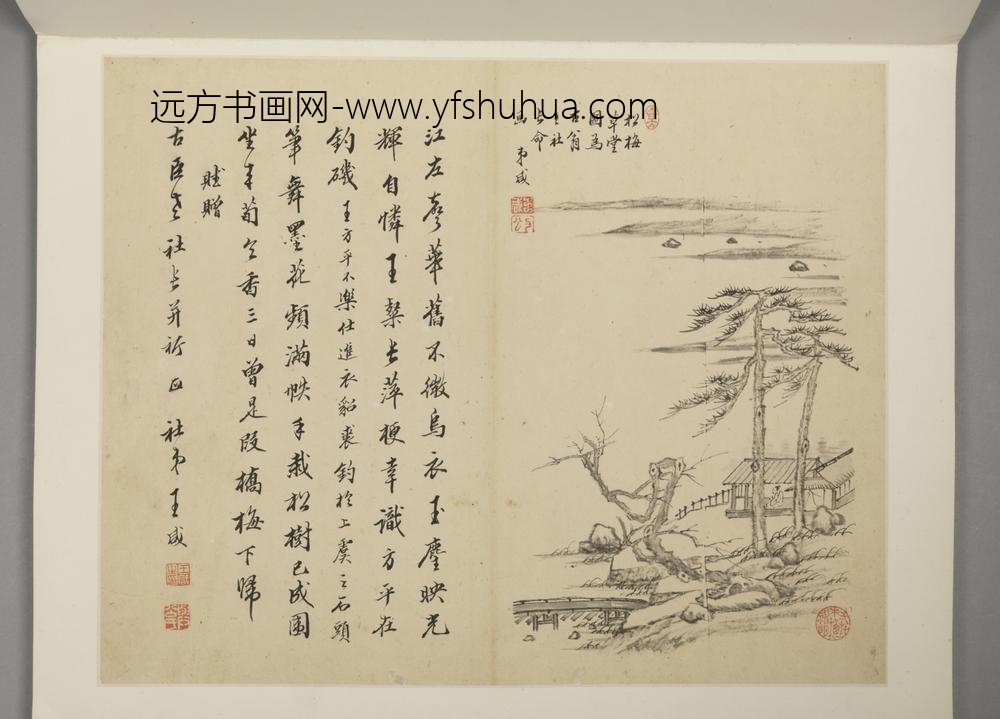 远方书画网-www.yfshuhua.com
松梅
草堂
圖為
古翁
社
命
弟咸
江左聲華舊不微烏衣玉麈映光
輝自憐王粲長萍梗幸識方平在
釣磯王方平不樂仕進衣貂裘釣於上虞之石頭
筆舞墨花頻滿帙手栽松樹已成圍
坐來荀令香三日曾是段橋梅下歸
賦贈
古臣老社長并祈正 社弟王咸